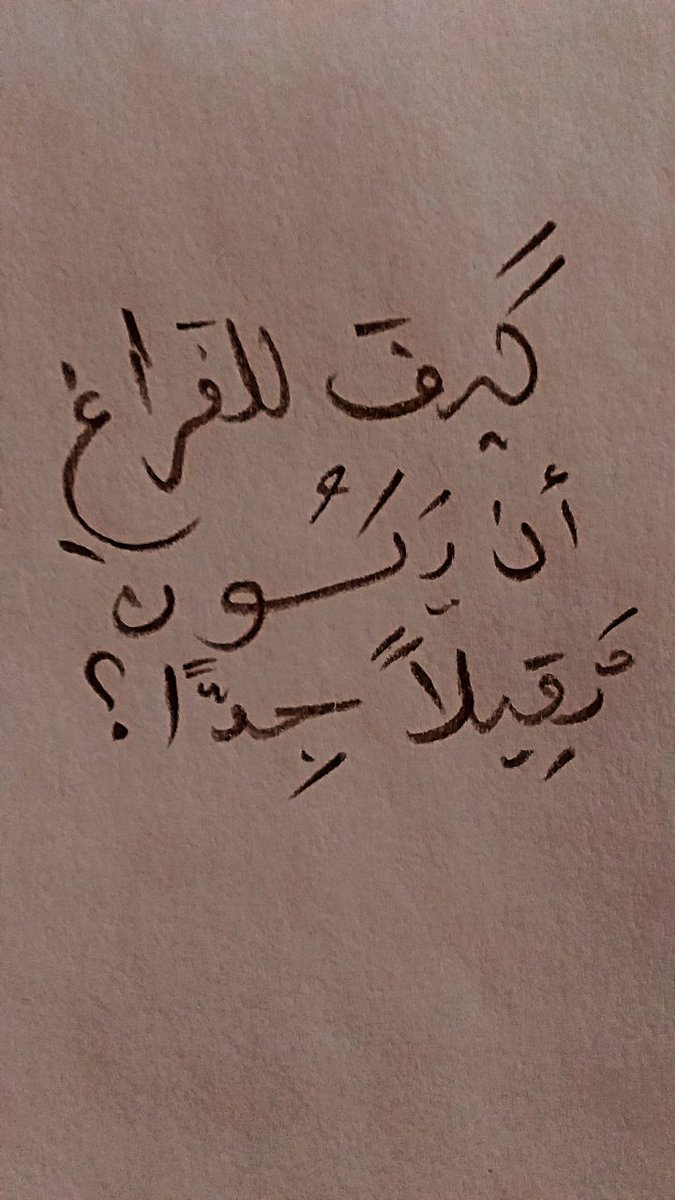 كَيفَ للفَراغِ
أن يَكُون
ثَقِيلاً جِدًّا؟